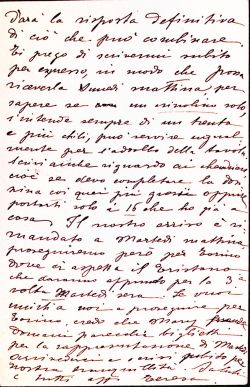 Darà la risposta definitiva
di ciò che può combinare
Ti prego di scrivermi subito
per espresso, in modo che possa
riceverla Lunedì mattina, per
sapere se un cilindro solo,
s'intende sempre di un trenta
e più chili, può servire ugual-
mente per l'addobbo della tavola
Scrivi anche riguardo ai
cioè se devo completare la
coi quei per guarnire
portarti solo i 15 che ho già a
casa Il nostro arrivo è ri-
mandato a Martedì mattina
proseguiremo però per Torino
dove ci aspetta il Tristano
che daranno appunto per la 3ª
volta Martedì sera. Se vuoi
unirti a noi e proseguire per
Torino credo che
domani parecchi biglietti
per la rappresentazione di Martedì
e scrivi subito per
nostra tranquillità. Saluti
a tutti aff Teresa